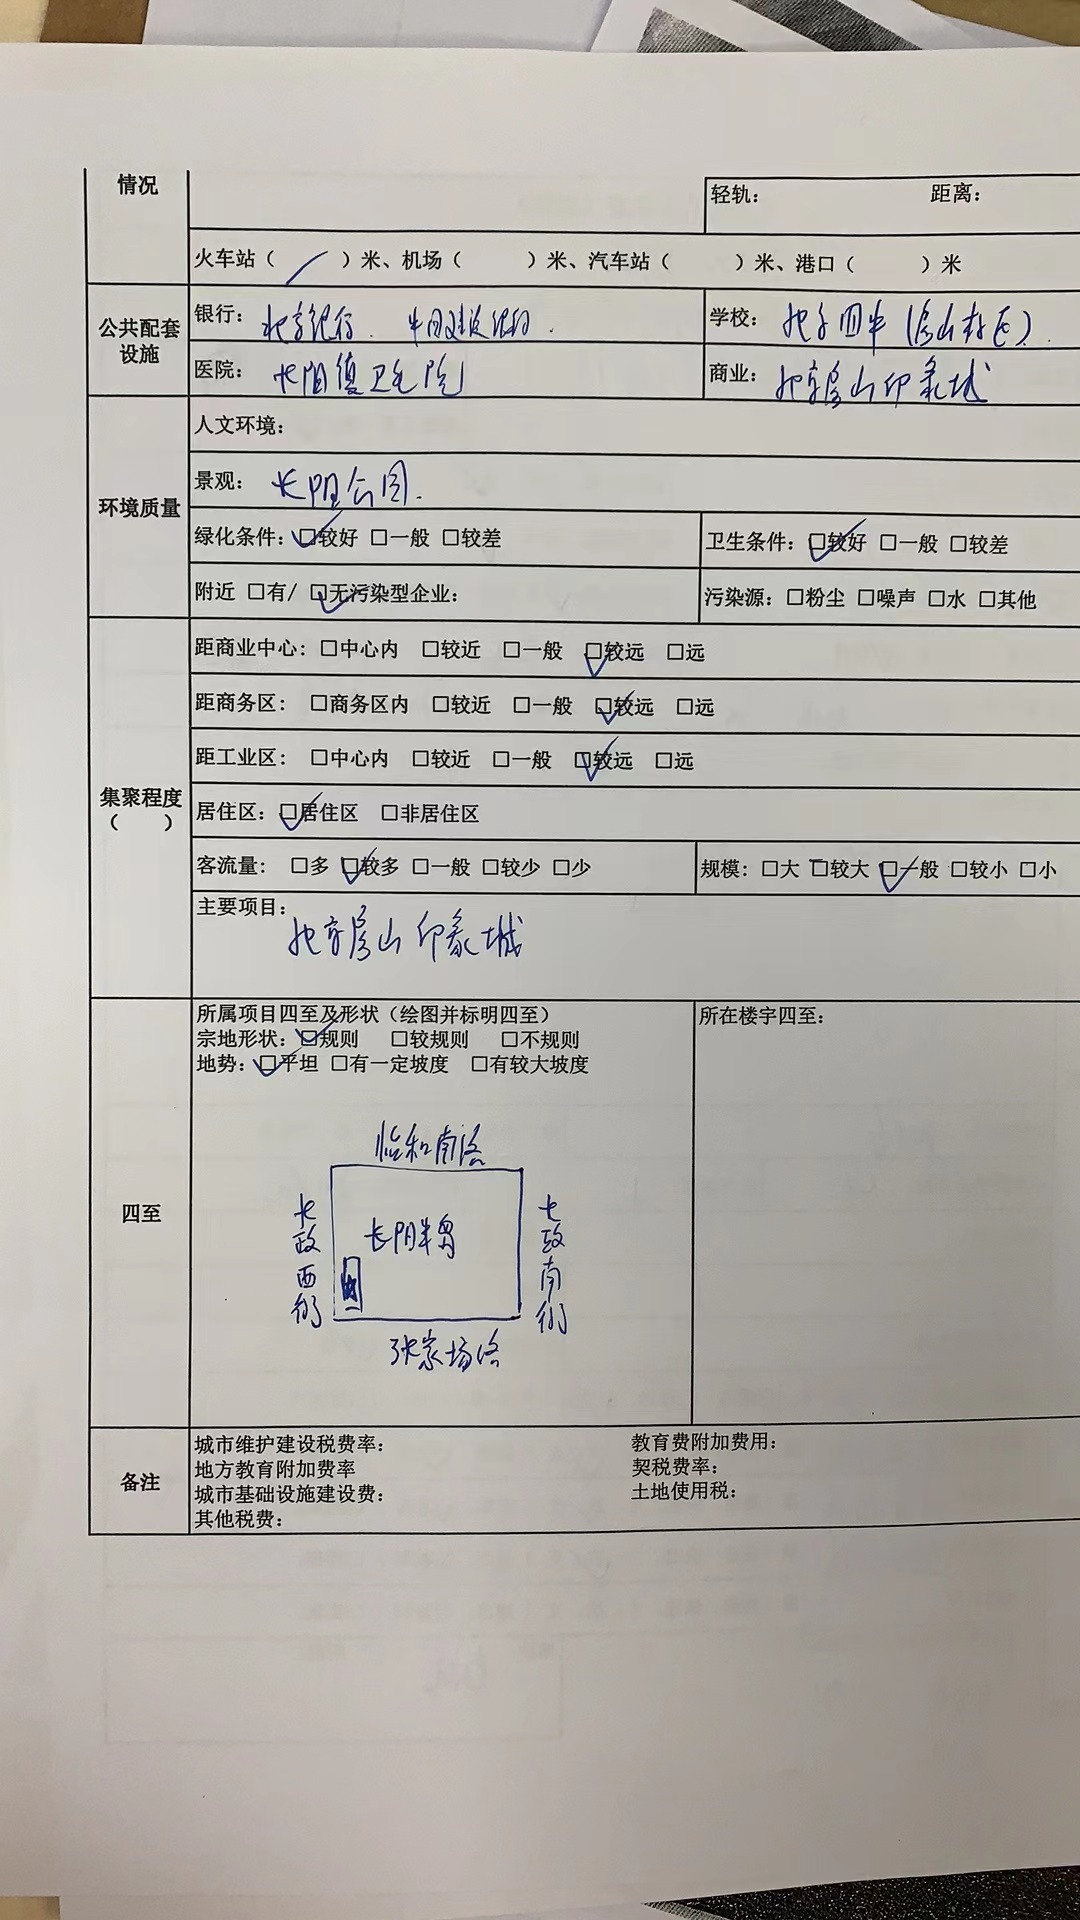 情况
轻轨： 距离：
火车站（ ）米、机场（ ）米、汽车站（ ）米、港口（ ）米
公共配套设施
银行：北京银行. 中国建设银行. 学校：北京四中(房山校区).
医院：长阳镇卫生院 商业：北京房山印象城
环境质量
人文环境：
景观：长阳公园.
绿化条件：☑较好 □一般 □较差 卫生条件：☑较好 □一般 □较差
附近 □有/ ☑无污染型企业： 污染源：□粉尘 □噪声 □水 □其他
集聚程度
（ ）
距商业中心：□中心内 □较近 □一般 ☑较远 □远
距商务区：□商务区内 □较近 □一般 ☑较远 □远
距工业区：□中心内 □较近 □一般 ☑较远 □远
居住区：☑居住区 □非居住区
客流量：□多 ☑较多 □一般 □较少 □少 规模：□大 □较大 ☑一般 □较小 □小
主要项目：
北京房山印象城
四至
所属项目四至及形状（绘图并标明四至） 所在楼宇四至：
宗地形状：☑规则 □较规则 □不规则
地势：☑平坦 □有一定坡度 □有较大坡度
怡和南路
长政西街
长阳半岛
长政南街
张家场路
备注
城市维护建设税费率： 教育费附加费用：
地方教育附加费率 契税费率：
城市基础设施建设费： 土地使用税：
其他税费：